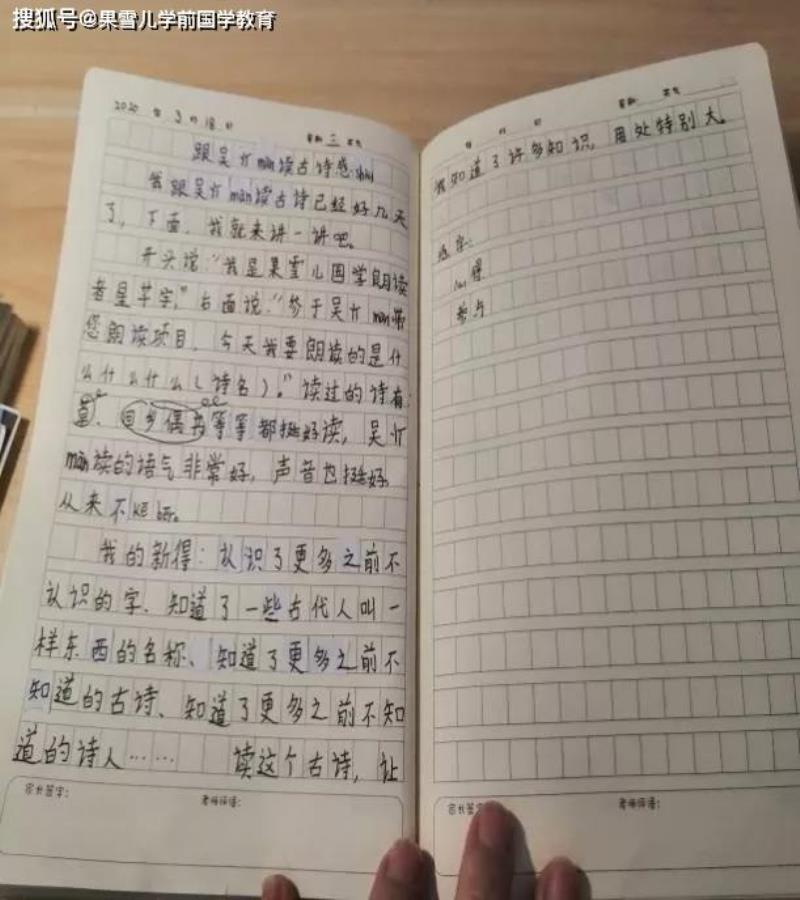 搜狐号@果雪儿学前国学教育
2020 年 3 月 日
星期 三 天气
跟吴 màn读古诗感
我跟吴 màn读古诗已经好几天
了，下面，我就来讲一讲吧。
开头说：“我是果雪儿国学朗读
者星芊宇，”后面说：“参于吴 màn
您朗读项目，今天我要朗读的是什
么什么什么（诗名）。”读过的诗有：
回乡偶书等等都挺好读，吴
màn读的语气非常好，声音也挺好，
从来不kē bēr。
我的新得：认识了更多之前不
认识的字、知道了一些古代人叫一
样东西的名称、知道了更多之前不
知道的古诗、知道了更多之前不知
道的诗人…… 读这个古诗，让
家长签字：
老师评语：
年 月 日
星期 天气
我知道了许多知识，用处特别大。
心得
参与
家长签字
老师评语：